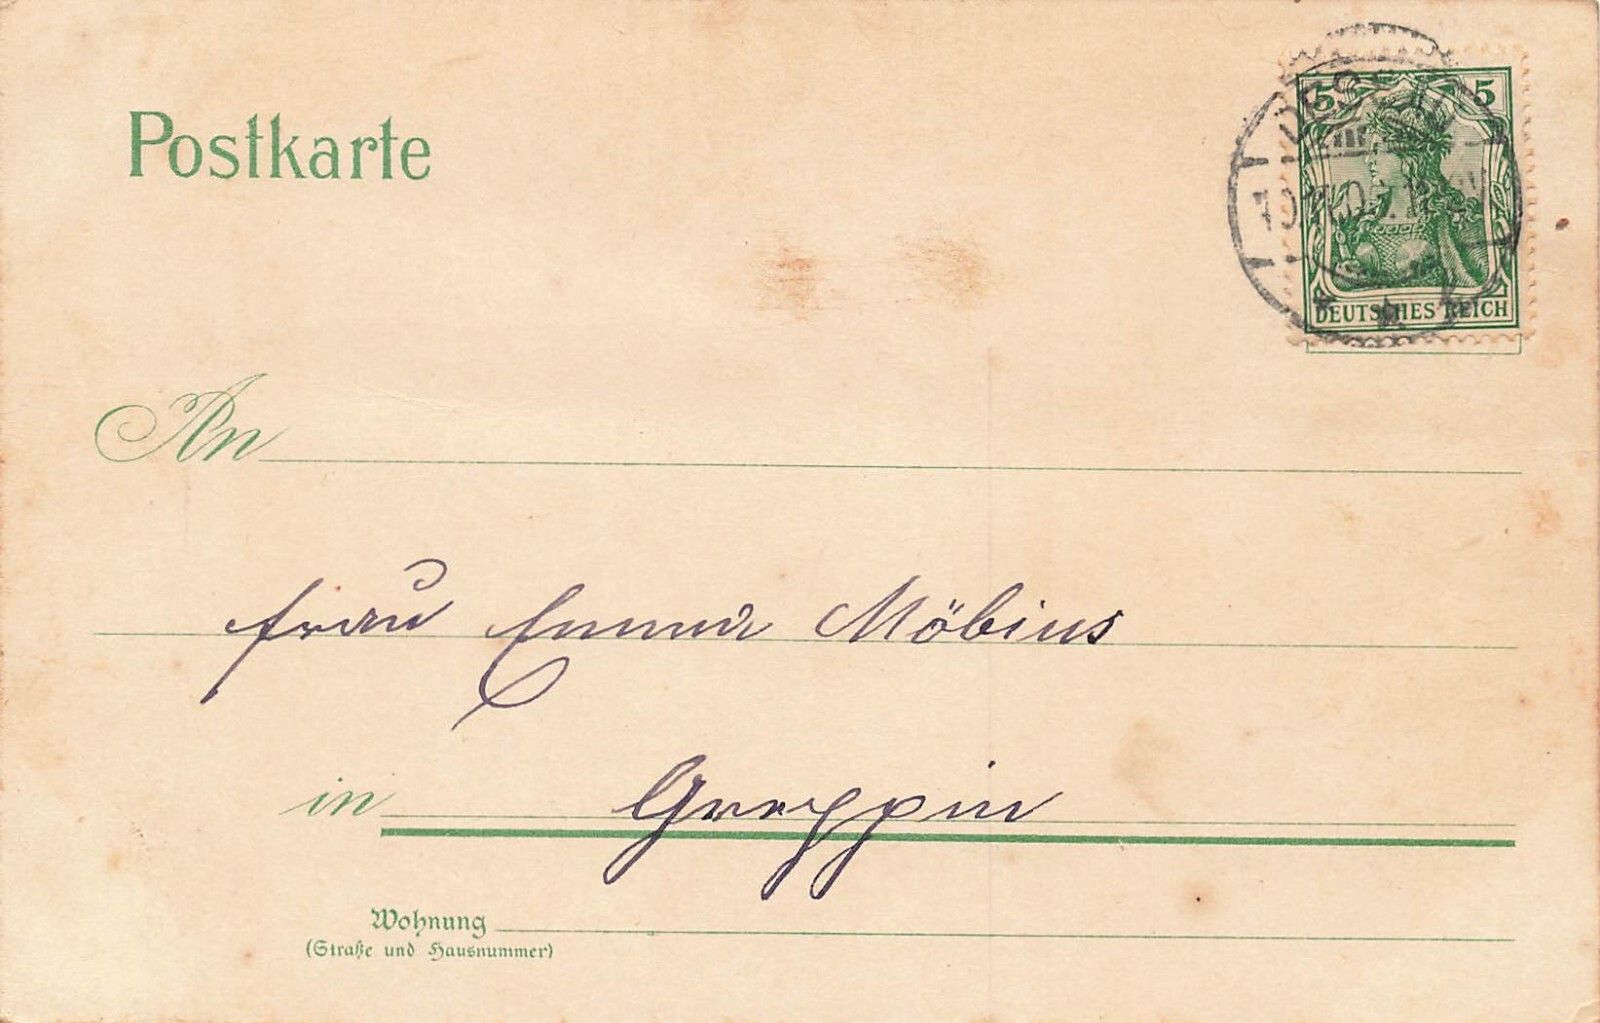 Postkarte
5 5
DEUTSCHES REICH
An
Frau Emma Möbius
in Greppin
Wohnung
(Straße und Hausnummer)